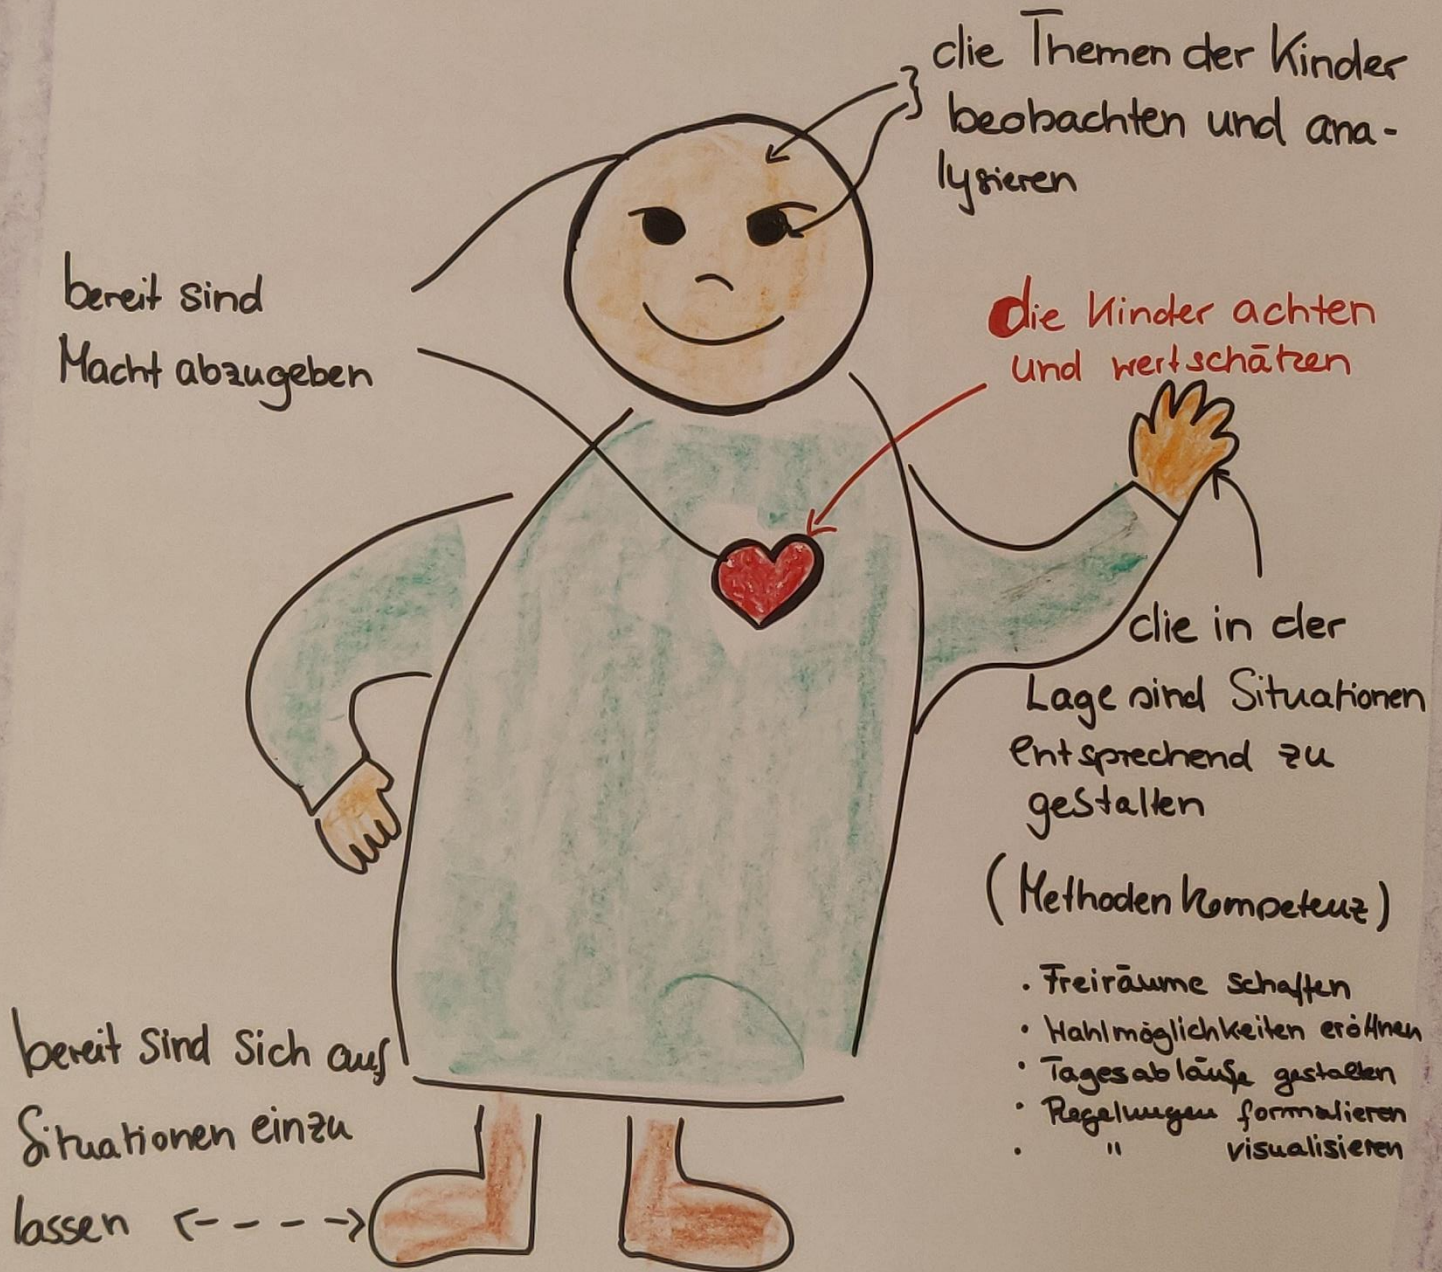 die Themen der Kinder
beobachten und ana-
lysieren
bereit sind
Macht abzugeben
die Kinder achten
und wertschätzen
die in der
Lage sind Situationen
entsprechend zu
gestalten
(Methodenkompetenz)
· Freiräume schaffen
· Wahlmöglichkeiten eröffnen
· Tagesabläufe gestalten
· Regelungen formalieren
· " visualisieren
bereit sind sich auf
Situationen einzu
lassen